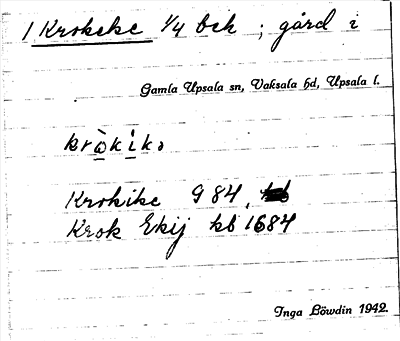 1 Krokeke 1/4 bek ; gård i
Gamla Upsala sn, Vaksala hd, Upsala l.
kròkikə
Krokike G 84,
Krok Ekij kb 1684
Inga Löwdin 1942.